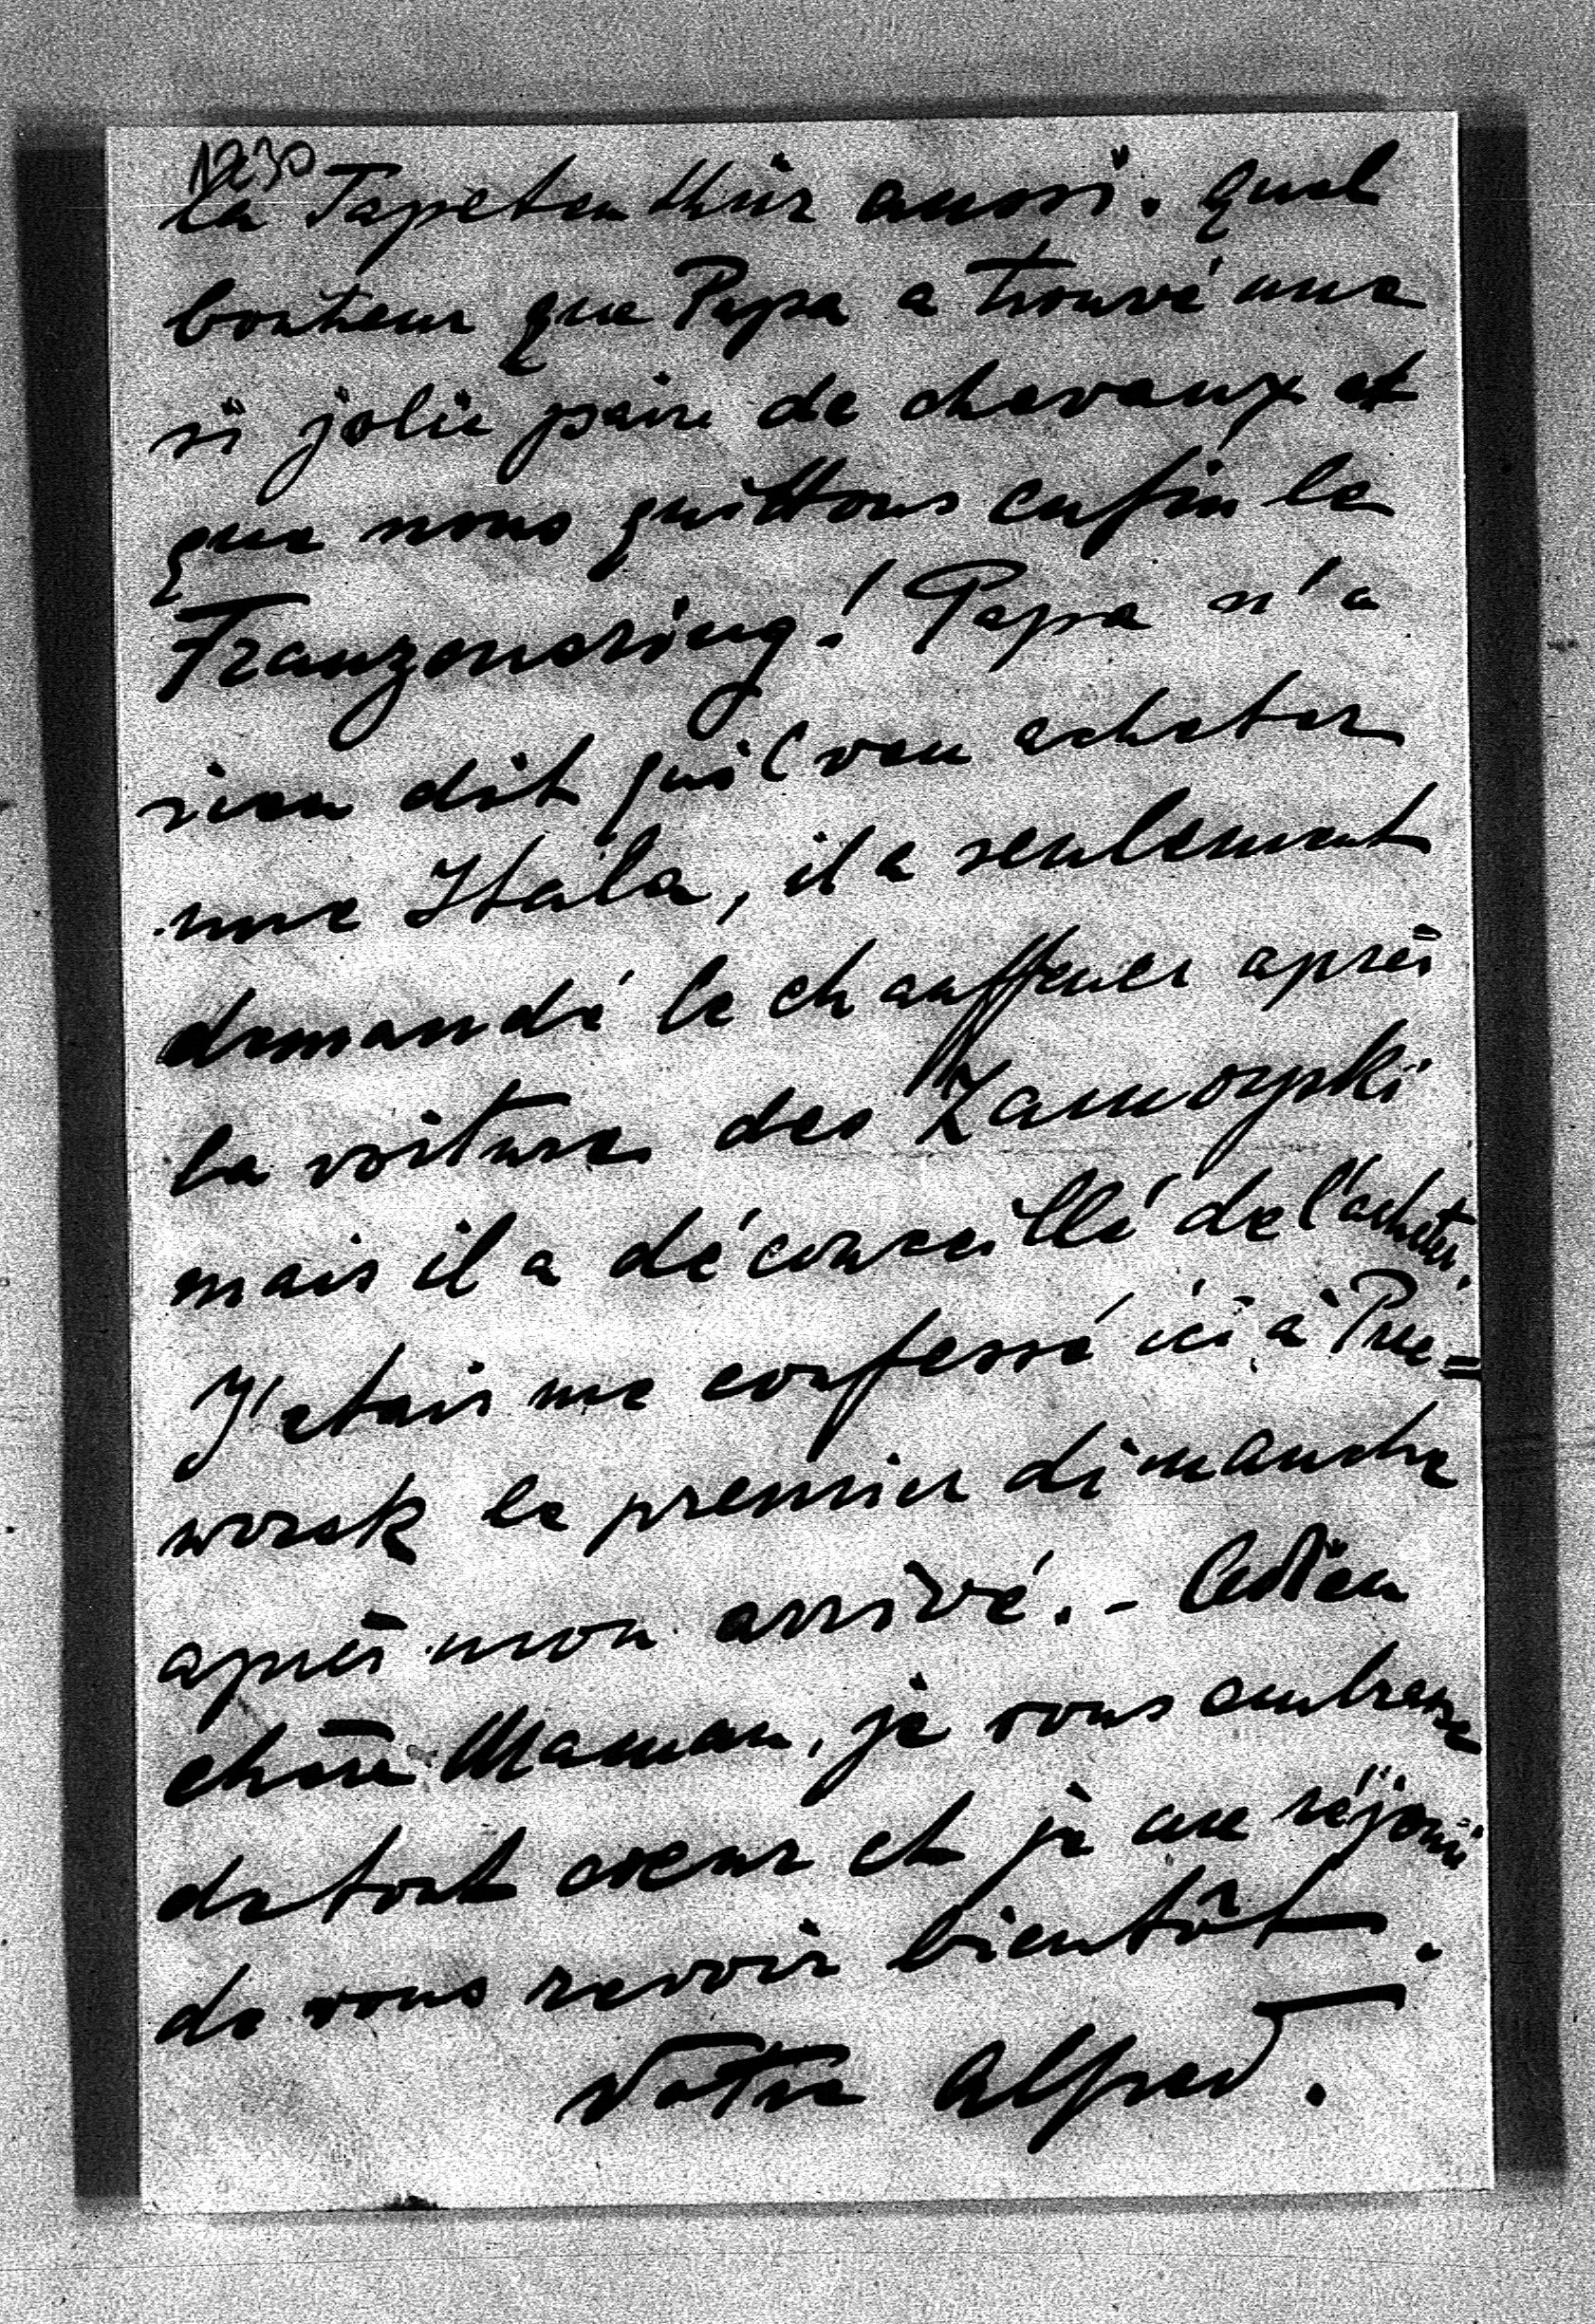 1230
la Tapetenthür aussi. quel
bonheur que Papa a trouvé une
si jolie paire de chevaux et
que nous quittons enfin le
Franzensring! Papa n'a
rien dit qu'il veu acheter
une Itala, il a seulement
demandé le chauffeur après
la voiture des Zamoyski
mais il a déconseillé de l'acheter.
J'etais me confessé ici à Prze=
worsk le premier dimanche
après mon arrivé. - Adieu
chère Maman, je vous embrasse
de tout coeur et je me réjoui
de vous revoir bientôt.
Votre Alfred.